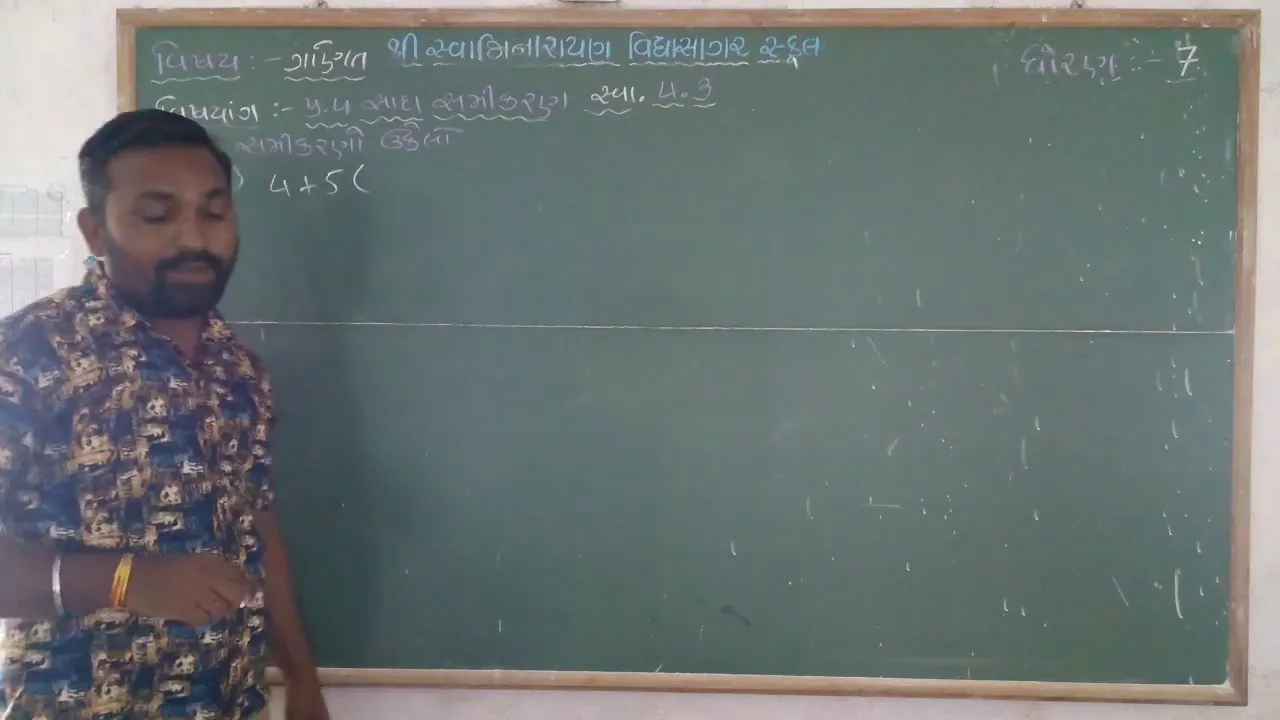 વિષય :- ગણિત શ્રી સ્વામિનારાયણ વિદ્યાસાગર સ્કૂલ ધોરણ :- 7
વિષયાંગ :- પ્ર.૫ સાદા સમીકરણ સ્વા. 4.3
સમીકરણો ઉકેલો
) 4+5(